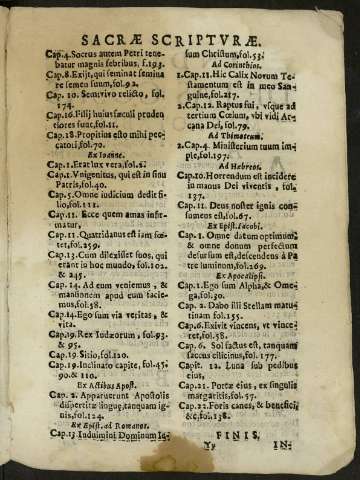 SACRÆ SCRIPTVRÆ.
Cap.4.Socrus autem Petri tene-
batur magnis febribus, f.193.
Cap.8.Exijt, qui seminat semina
re semen suum, fol.92.
Cap. 10. Semivivo relicto, fol.
174.
Cap.16.Filij huius sæculi pruden
tiores sunt, fol.11.
Cap.18.Propitius esto mihi pec-
catori, fol.70.
Ex Ioanne.
Cap.1.Erat lux vera, fol.2.
Cap.1.Vnigenitus, qui est in sinu
Patris, fol.40.
Cap.5.Omne iudicium dedit fi-
lio, fol.121.
Cap.11. Ecce quem amas infir-
matur,
Cap.11.Quatriduanus est iam fœ-
tet, fol.259.
Cap.13.Cum dilexisset suos, qui
erant in hoc mundo, fol.102.
& 215.
Cap.14. Ad eum veniemus, &
mansionem apud eum facie-
mus, fol.58.
Cap.14.Ego sum via veritas, &
vita.
Cap.19.Rex Iudæorum, fol.93.
& 95.
Cap.19.Sitio, fol.120.
Cap.19.Inclinato capite, fol.45.
90.& 110.
Ex Actibus Apost.
Cap. 2. Apparuerunt Apostolis
dispertitæ linguę, tanquam ig-
nis, fol.124.
Ex Epist. ad Romanos.
Cap.13.Induimini Dominum Ie-
sum Christum, fol.53.
Ad Corinthios.
1.Cap.11.Hic Calix Novum Te-
stamentum est in meo San-
guine, fol.217.
2.Cap.12. Raptus fui, vsque ad
tertium Cœlum, vbi vidi Ar-
cana Dei, fol.79.
Ad Thimoteum.
2.Cap.4. Ministerium tuum im-
ple, fol.197.
Ad Hebreos.
Cap.10.Horrendum est incidere
in manus Dei viventis, fol.
137.
Cap.11. Deus noster ignis con-
sumens est, fol.67.
Ex Epist. Iacobi.
Cap.1. Omne datum optimum,
& omne donum perfectum
desursum est, descendens à Pa
tre luminum, fol.269.
Ex Apocalipsi.
Cap.1.Ego sum Alpha, & Ome-
ga, fol.30.
Cap. 2. Dabo illi Stellam matu-
tinam fol.155.
Cap.6.Exivit vincens, vt vince-
ret, fol.38.
Cap. 6. Sol factus est, tanquam
saccus cilicinus, fol. 177.
Capit. 12. Luna sub pedibus
eius,
Cap.21. Portæ eius, ex singulis
margaritis, fol.57.
Cap.22.Foris canes, & benefici,
&c, fol.138.
FINIS.
Yy IN-